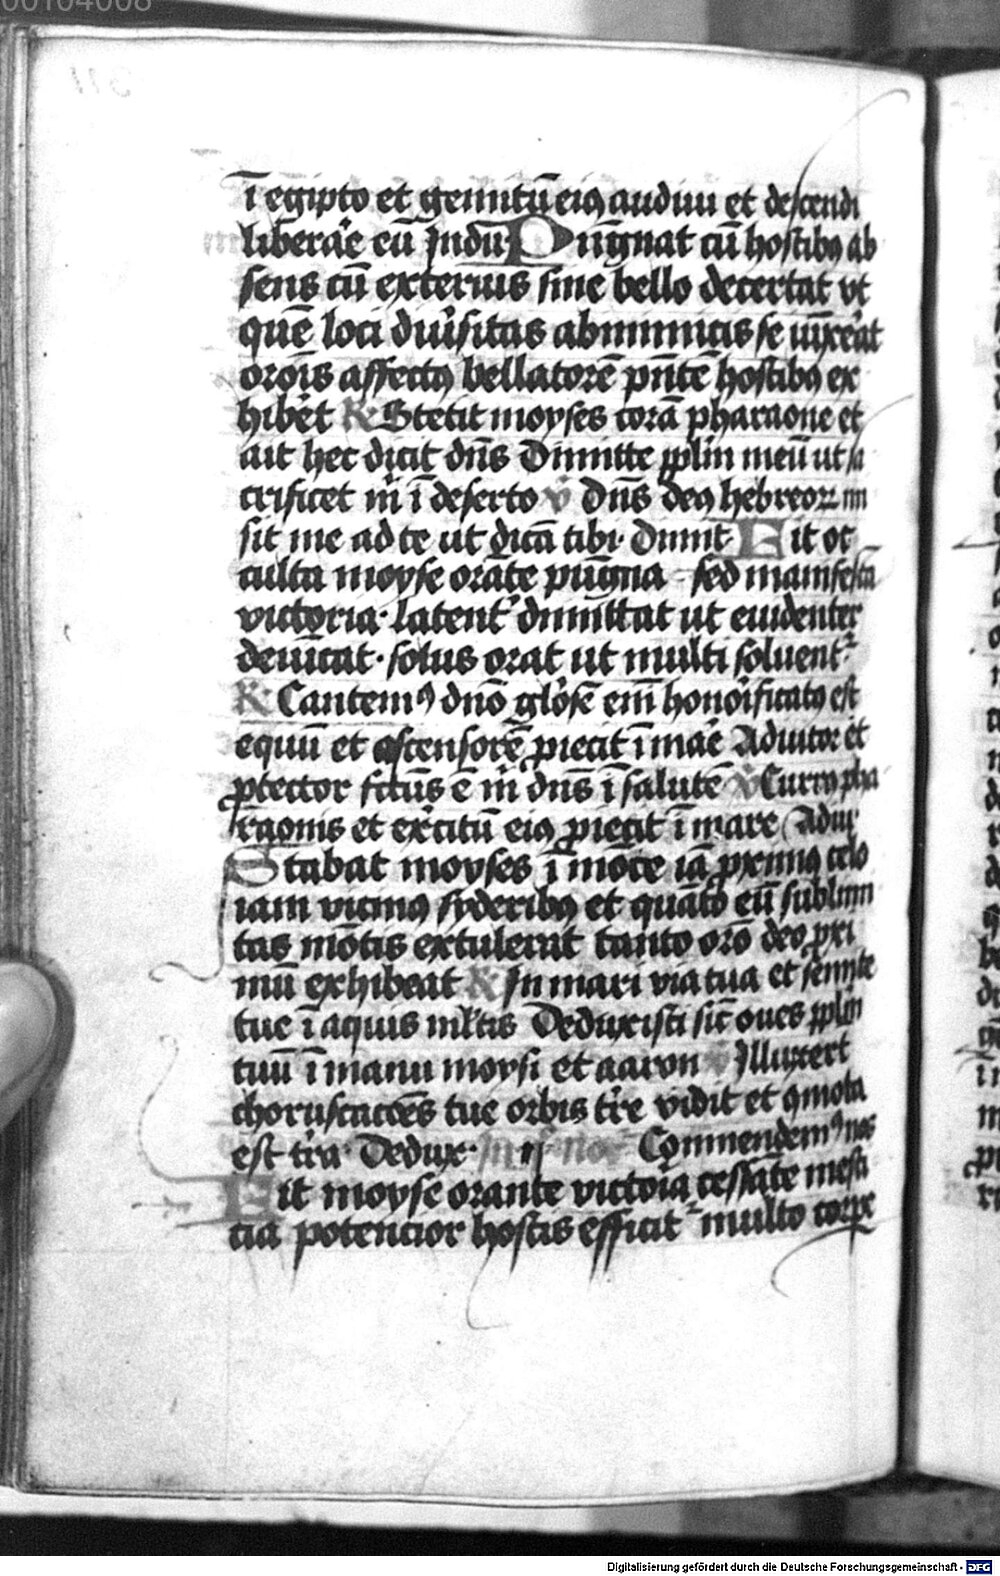 00104008
311
ī egipto et gemitū eiꝰ audiui et descendi
liberaͤe eū Jndū Pugnat cū hostibꝰ ab
sens cū exterius sine bello decertat vt
quē loci diu͛sitas ab inimicis se iūxerat
orōis affectꝰ bellatorē pn̄tē hostibꝰ ex
hibet ℟ Stetit moyses corā pharaone et
ait hec dicit dn̄s Dimitte ꝓplm̄ meū ut sa
crificet m̄ ī deserto ℣ Dn̄s deꝰ hebreoꝝ mi
sit me ad te ut dicā tibi· Dimit Fit oc
culta moyse orāte pugna sed manifesta
victoria· latent͛ dimittat ut euidenter
deuīcat· solus orat ut multi soluent᷑
℟ Cantemꝰ dn̄o glo͛se em̄ honorificatꝰ est
equū et ascensorē ꝓiecit ī mar͛e Adiutor et
ꝓtector fctūs ē m̄ dn̄s ī salutē ℣ Currꝰ pha
raonis et exc͛itū eiꝰ ꝓiecit ī mare Adiu
Stabat moyses ī mōte iā ꝓximꝰ celo
iam vicinꝰ syderibꝰ et quāto eū sublimi
tas mōtis extulerat tanto orō deo ꝓxi
mū exhibeat ℟ Jn mari via tua et semite
tue ī aquis ml̄tis Deduxisti sic̄ oues ꝓplm̄
tuū ī manu moysi et aaron ℣ Jlluxert
choruscacōes tue orbis tr͛e vidit et ꝯmota
est tr͛a Dedux· in ij noc Commendemꝰ nos
Fit moyse orante victoia cessāte mesti
cia potencior hostis efficit᷑ multo corpe
Digitalisierung gefördert durch die Deutsche Forschungsgemeinschaft - DFG